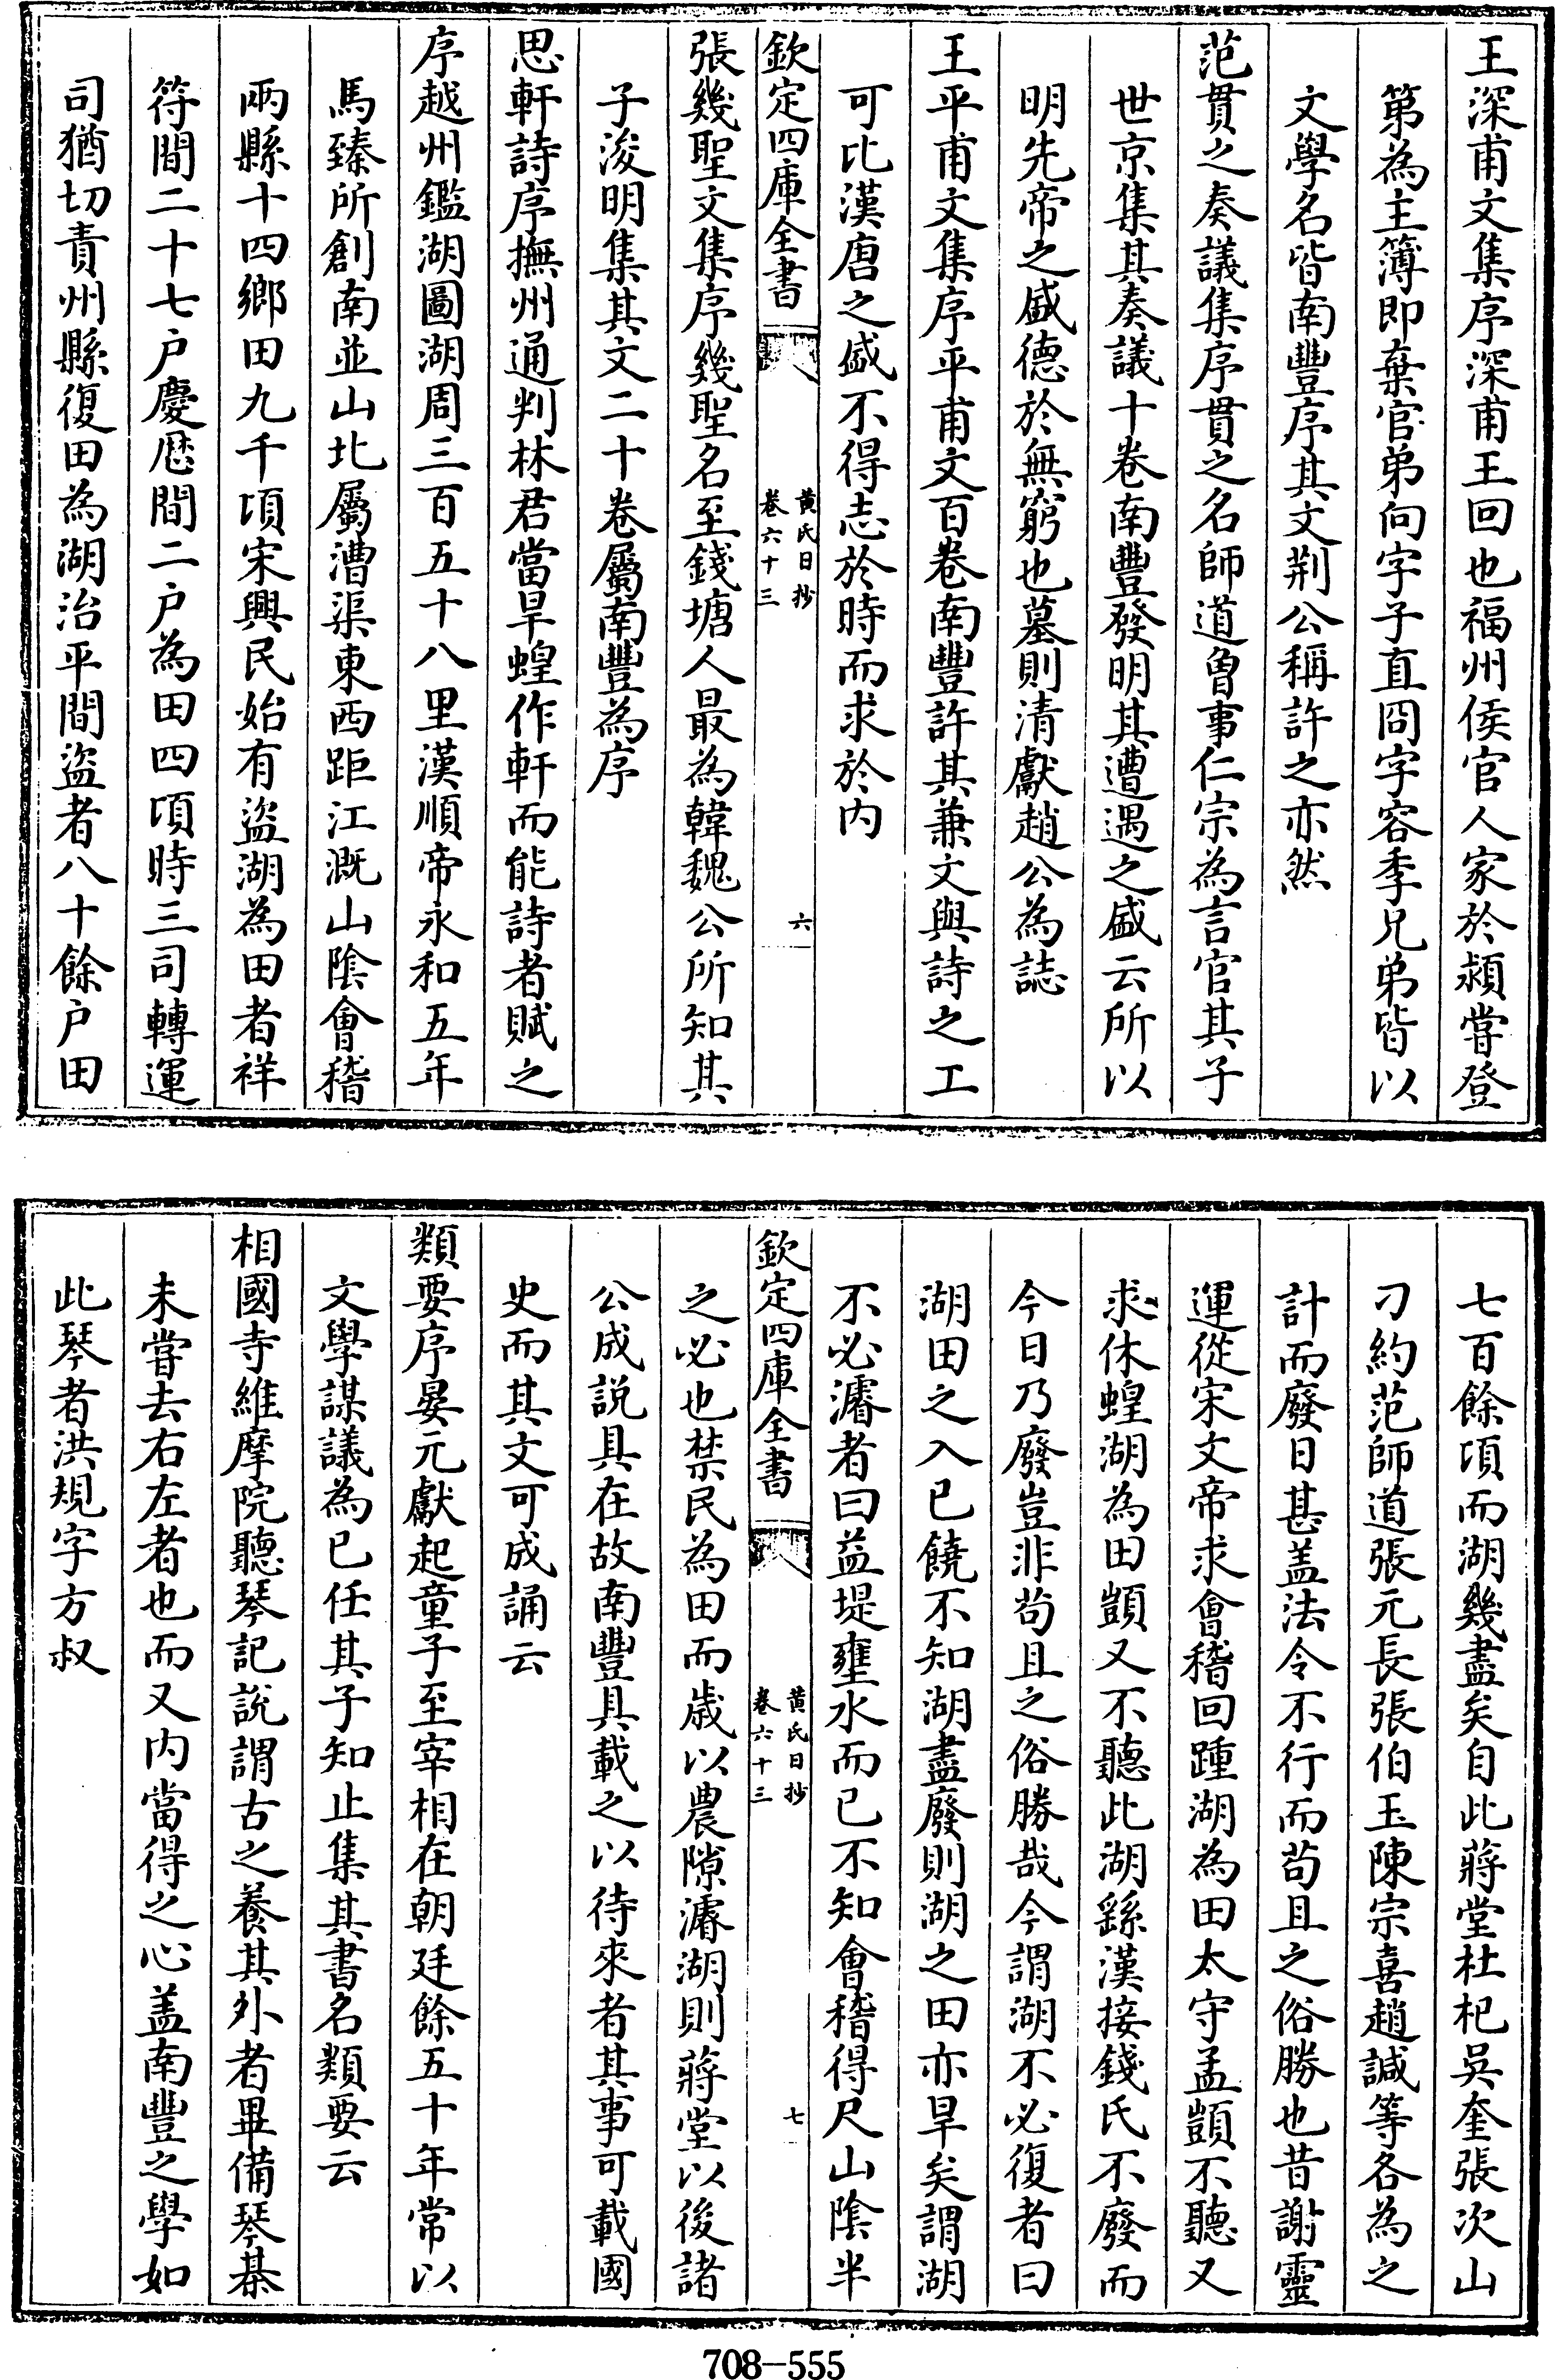 王深甫文集序深甫王回也福州侯官人家於潁嘗登
第為主簿即棄官弟向字子直冏字容季兄弟皆以
文學名皆南豐序其文荆公稱許之亦然
范貫之奏議集序貫之名師道曾事仁宗為言官其子
世京集其奏議十卷南豐發明其遭遇之盛云所以
明先帝之盛德於無窮也墓則清獻趙公為誌
王平甫文集序平甫文百卷南豐許其兼文與詩之工
可比漢唐之盛不得志於時而求於内
欽定四庫全書
黄氏日抄
卷六十三
六
張幾聖文集序幾聖名至錢塘人最為韓魏公所知其
子浚明集其文二十卷屬南豐為序
思軒詩序撫州通判林君當旱蝗作軒而能詩者賦之
序越州鑑湖圖湖周三百五十八里漢順帝永和五年
馬臻所創南並山北屬漕渠東西距江溉山隂會稽
兩縣十四鄉田九千頃宋興民始有盜湖為田者祥
符間二十七户慶厯間二户為田四頃時三司轉運
司猶切責州縣復田為湖治平間盜者八十餘户田
七百餘頃而湖幾盡矣自此蔣堂杜杞吳奎張次山
刁約范師道張元長張伯玉陳宗喜趙諴等各為之
計而廢日甚盖法令不行而茍且之俗勝也昔謝靈
運從宋文帝求會稽回踵湖為田太守孟顗不聽又
求休蝗湖為田顗又不聽此湖繇漢接錢氏不廢而
今日乃廢豈非茍且之俗勝哉今謂湖不必復者曰
湖田之入已饒不知湖盡廢則湖之田亦旱矣謂湖
不必濬者曰益堤壅水而已不知會稽得尺山隂半
欽定四庫全書
黄氏日抄
卷六十三
七
之必也禁民為田而歲以農隙濬湖則蔣堂以後諸
公成說具在故南豐具載之以待來者其事可載國
史而其文可成誦云
類要序晏元獻起童子至宰相在朝廷餘五十年常以
文學謀議為已任其子知止集其書名類要云
相國寺維摩院聽琴記說謂古之養其外者畢備琴棊
未嘗去右左者也而又内當得之心盖南豐之學如
此琴者洪規字方叔
708-555